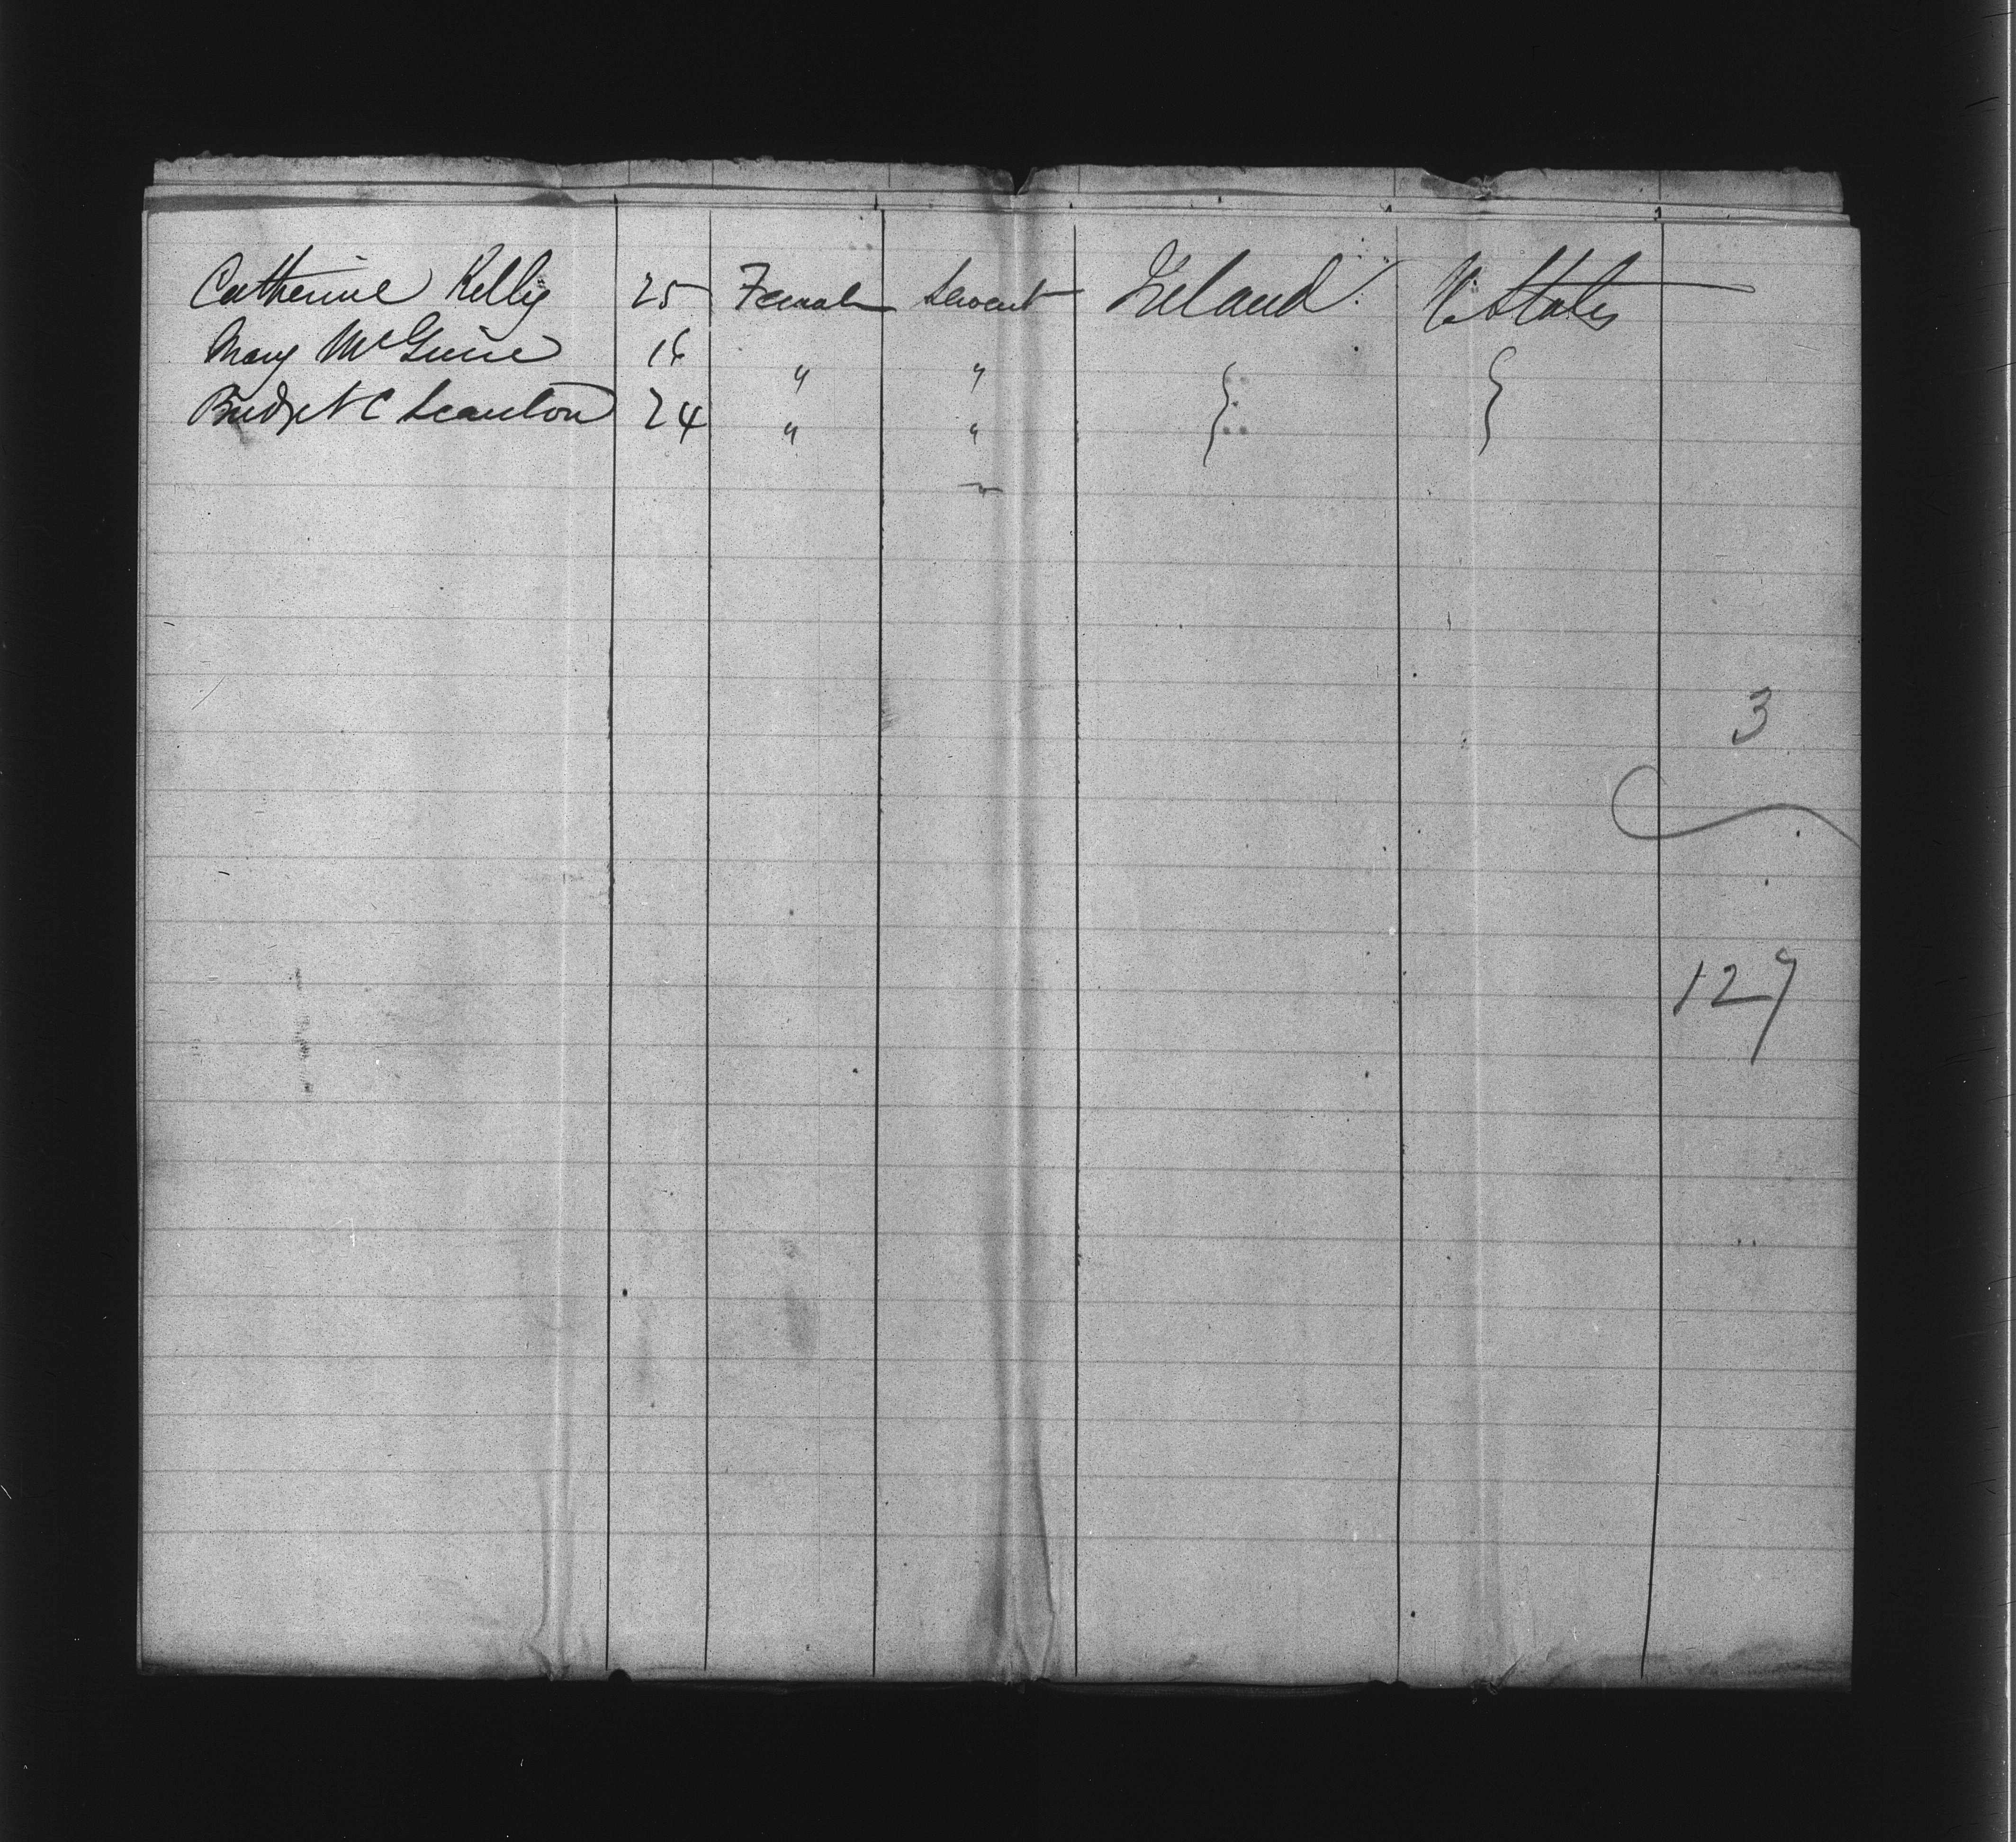 Catherine Kelly 25 Female Servant Ireland U. States
Mary McGuire 16 " " } }
Bridget C Scanlon 24 " "
3
127